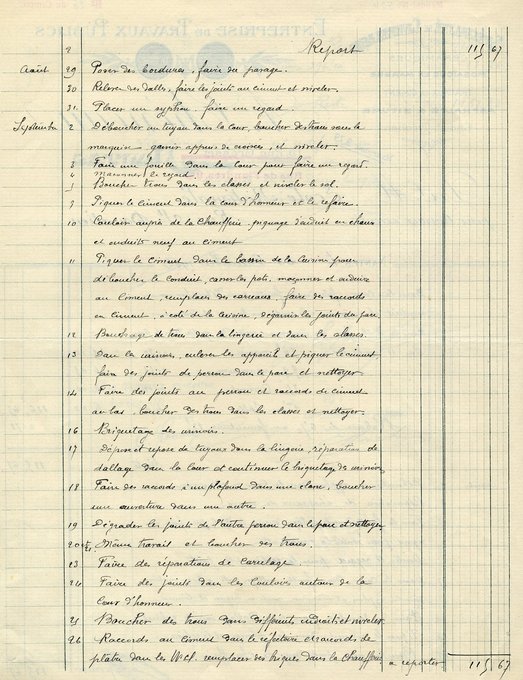 2 Report 115 67
Août 29 Poser des bordures, faire du pavage.
30 Relever des dalles, faire les joints au ciment et niveler.
31 Placer un syphon, faire un regard.
Septembre 2 Déboucher un tuyau dans la cour, boucher des trous sous la
marquise garnir appuis de croisées, et niveler.
3 Faire une fouille dans la cour pour faire un regard.
4 Maçonner le regard.
5 Boucher trous dans les classes et niveler le sol.
9 Piquer le ciment dans la cour d'honneur et le refaire.
10 Couloir auprès de la Chaufferie, piquage d'enduit en chaux
et enduits neuf au ciment
11 Piquer le ciment dans le bassin de la cuisine pour
déboucher le conduit, casser les pots, maçonner et enduire
au ciment, remplacer des carreaux, faire des raccords
en ciment, à côté de la cuisine, dégarnir les joints du parc.
12 Bouchage de trous dans la lingerie et dans les classes.
13 Dans les urinoirs, enlever les appareils et piquer le ciment
faire des joints de perron dans le parc et nettoyer.
14 Faire des joints au perron et raccords de ciment
au bas, boucher des trous dans les classes et nettoyer.
16 Briquetage des urinoirs.
17 Dépose et repose de tuyaux dans la lingerie, réparation de
dallage dans la cour et continuer le briquetage des urinoirs
18 Faire des raccords à un plafond dans une classe, boucher
une ouverture dans une autre.
19 Dégrader les joints de l'autre perron dans le parc et nettoyer.
20 et 21 Même travail et boucher des trous.
23 Faire des réparations de carrelage.
24 Faire des joints dans les couloirs autour de la
Cour d'honneur.
25 Boucher des trous dans différents endroits et niveler.
26 Raccords au ciment dans le réfectoire et raccords de
plâtre dans les W.cl. remplacer des briques dans la Chaufferie à reporter 115 67